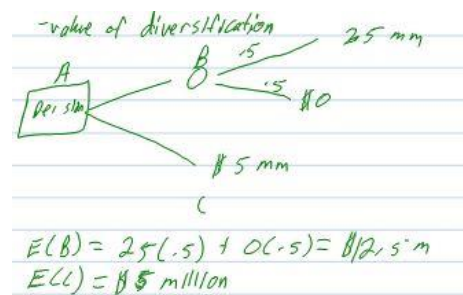 -value of diversification
B .5 25 mm
A
Decision .5 $0
$5 mm
C
E(B) = 25(.5) + 0(.5) = $12.5 m
E(C) = $5 million